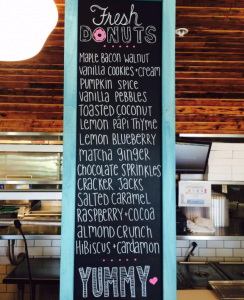 Fresh
DONUTS
MAPLE BACON WALNUT
VANILLA COOKIES+CREAM
PUMPKIN SPICE
VANILLA PEBBLES
TOASTED COCONUT
LEMON PAPI THYME
LEMON BLUEBERRY
MATCHA GINGER
CHOCOLATE SPRINKLES
CRACKER JACKS
SALTED CARAMEL
RASPBERRY+COCOA
ALMOND CRUNCH
HIBISCUS+CARDAMON
YUMMY